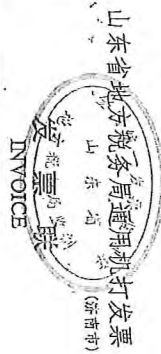 山东省地方税务局通用机打发票
(济南市)
山东省
发票联
INVOICE